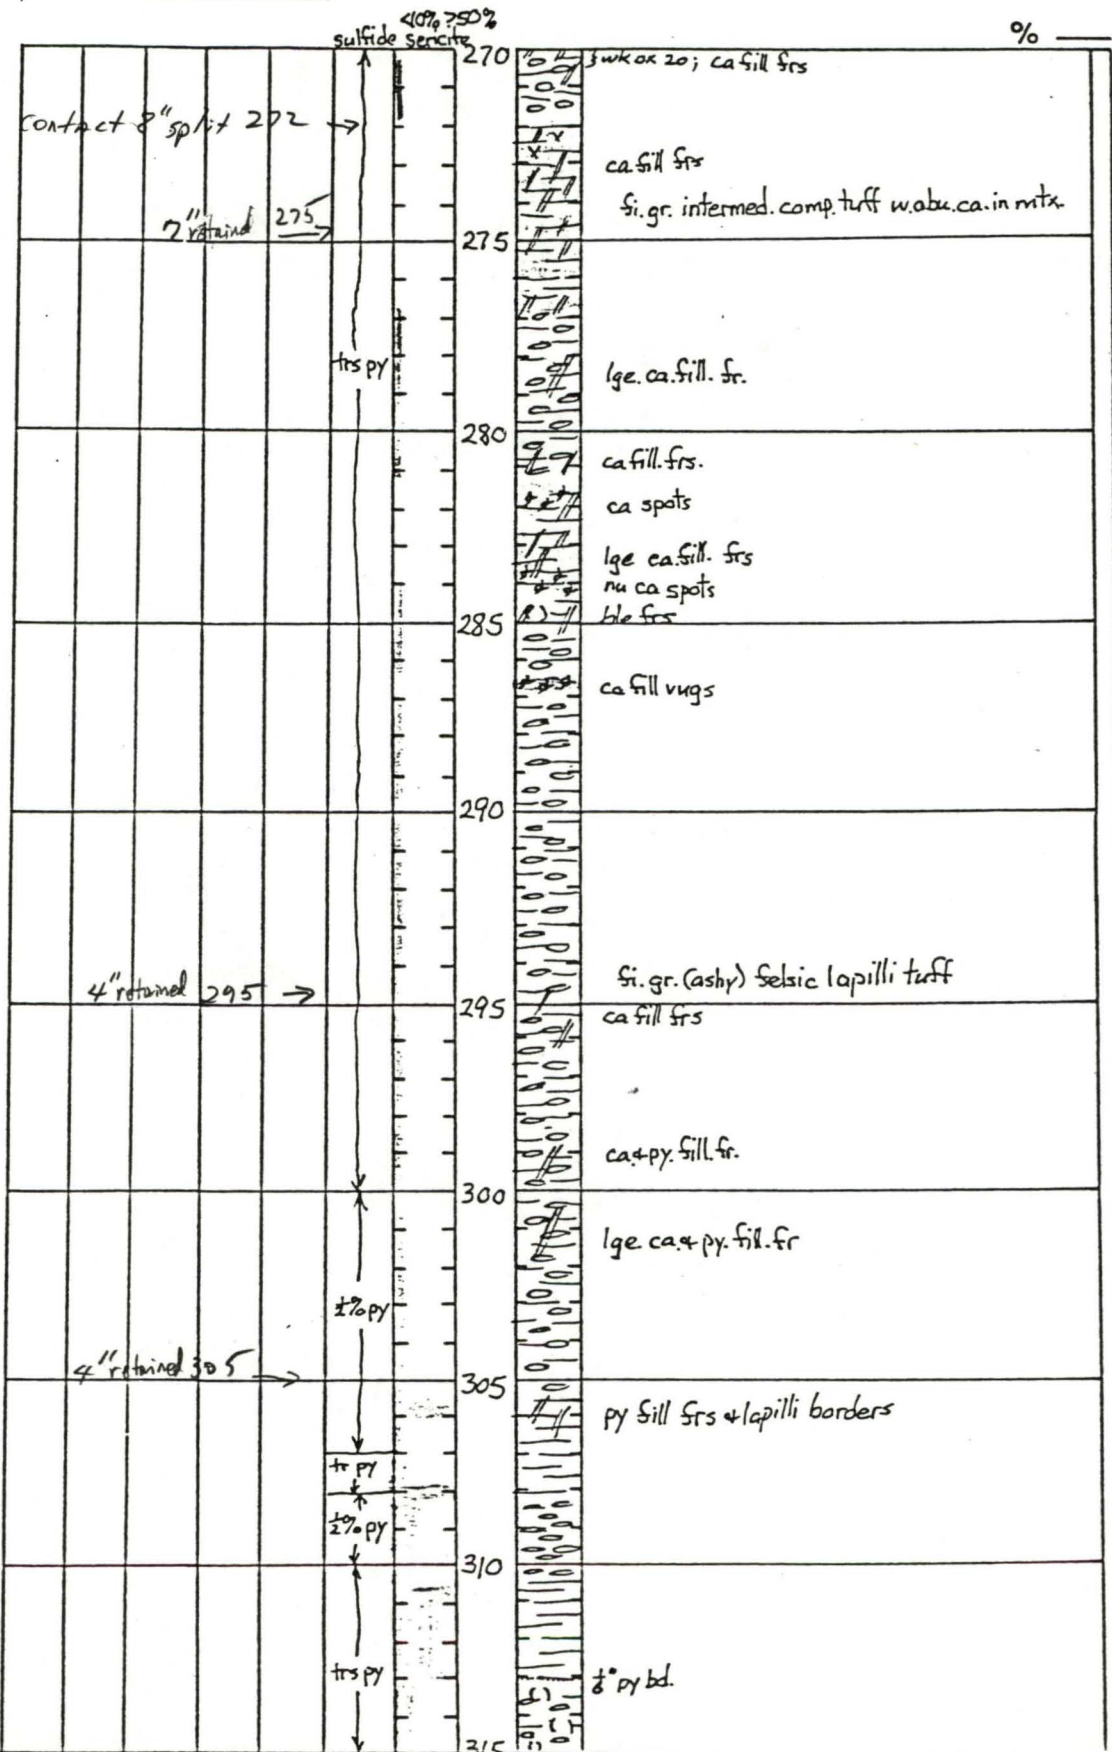 <10% >50%
sulfide sericite
%
270
} wk ox zo; ca fill frs
contact 8" split 272 →
ca fill frs
fi. gr. intermed. comp. tuff w. abu. ca. in mtx.
7" retained 275 →
275
trs py
lge. ca. fill. fr.
280
ca fill. frs.
ca spots
lge ca. fill. frs
nu ca spots
ble frs
285
ca fill vugs
290
fi. gr. (ashy) felsic lapilli tuff
4" retained 295 →
295
ca fill frs
ca. & py. fill. fr.
300
lge ca. & py. fill. fr
½% py
4" retained 305 →
305
py fill frs & lapilli borders
tr py
½% py
310
trs py
py bd.
315